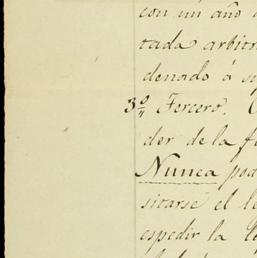 con un año d
tada arbitr
denado á s
3º Tercero. C
der de la f
Nunca pod
sitarse el l
espedir la l